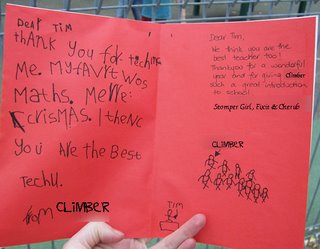 Dear Tim
thank you for teching
me. my favrt was
maths. merre:
crismas. I thenc
you are the best
techu.
from CLIMBER
Dear Tim,
We think you are the
best teacher too!
Thankyou for a wonderful
year and for giving Climber
such a great introduction
to school!
Stomper Girl, Fixit & Cherub
CLIMBER
Tim